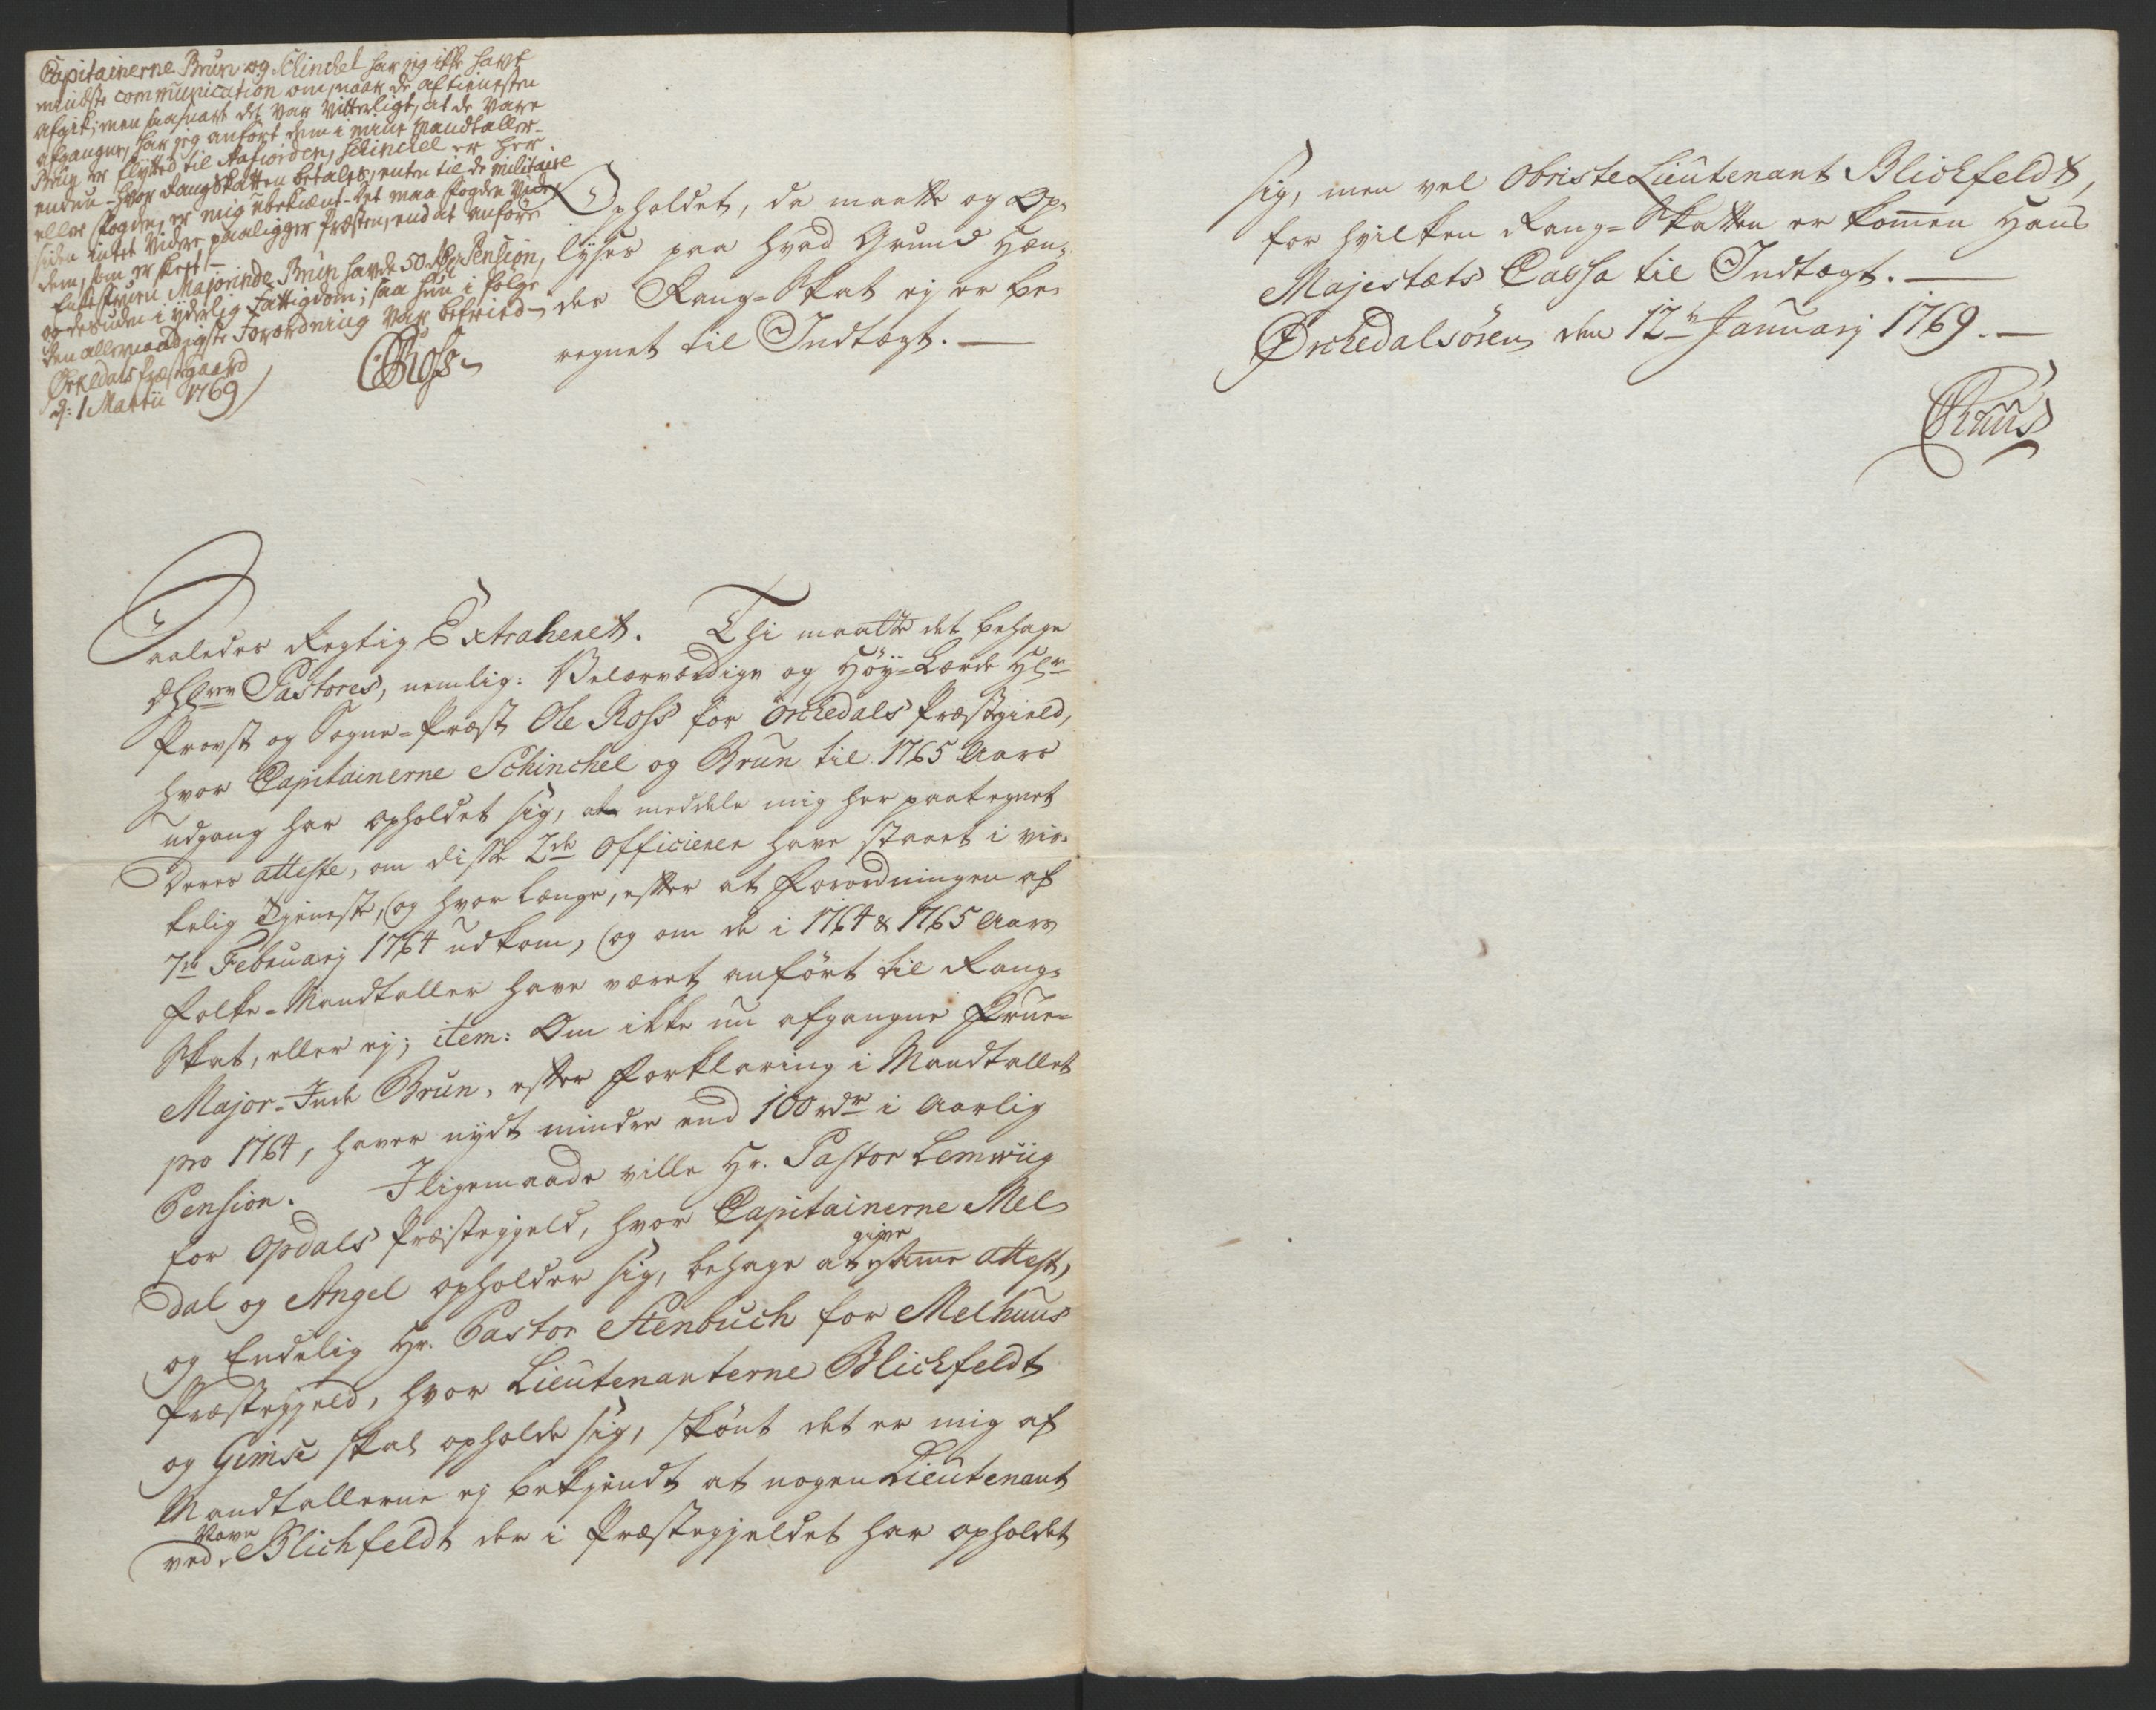 Capitainerne Brun og Schinckel har jeg ikke havt
mindste communication om, naar de af tienesten
afgik; men saasnart det var vitterligt, at de vare
afgangne, har jeg anfört dem i mine Mandtaller.
Brun er flytted til Aafiorden, Schinckel er her
endnu - hvor Rangskatten betales, enten til de militaire
eller fogden, er mig ubekient - det maa fogden vide
siden intet videre paaligger Præsten, end at anföre
dem, som er skeet -
Enke Fruen Majorinde Brun havde 50 Rdr Pension,
og desuden i yderlig Fattigdom; saa hun i fölge
den allernaadigste Forordning var befried -
Örkedals Præstegaard
d: 1 Martii 1769
ORoss
Opholdet, da maatte og Op-
lyses paa hvad Grund Hen-
der Rang-Skat ej er be-
regnet til Indtægt. —
Saaledes Rigtig Extraheret. Thi maatte det behage
dHhrr Pastores, nemlig: Velærværdige og Höy-Lærde Hr
Provst og Sogne-Præst Ole Ross for Orchedals Præstegield,
hvor Capitainerne Schinchel og Brun til 1765 Aars
udgang har opholdet sig, at meddele mig her paategnet
Deres atteste, om disse 2de Officierer have staaet i vir-
kelig Tjeneste, og hvor længe, efter at Forordningen af
7de Februarj 1764 udkom, og om de i 1764 & 1765 Aars
folke-Mandtaller have været anfört til Rang-
Skat, eller ej; item: Om ikke nu afgangne Frue-
Major-Inde Brun, efter Forklaring i Mandtallet
pro 1764, haver nydt mindre end 100 rdr i Aarlig
Pension. Iligemaade ville Hr. Pastor Lemwiig
for Opdals Præstegjeld, hvor Capitainerne Mel-
dal og Angel opholder sig, behage at give same attest,
og Endelig Hr. Pastor Stenbuch for Melhuus
Præstegjeld, hvor Lieutenanterne Blichfeldt
og Gimse skal opholde sig, skönt det er mig af
Mandtallerne ej bekjendt at nogen Lieutenant
ved Navn Blichfeldt der i Præstegjeldet har opholdet
sig, men vel Obriste Lieutenant Blichfeldt,
for hvilken Rang-Skatten er kom̅en Hans
Majestæts Cassa til Indtægt. —
Orchedalsören den 12te Januarj 1769. —